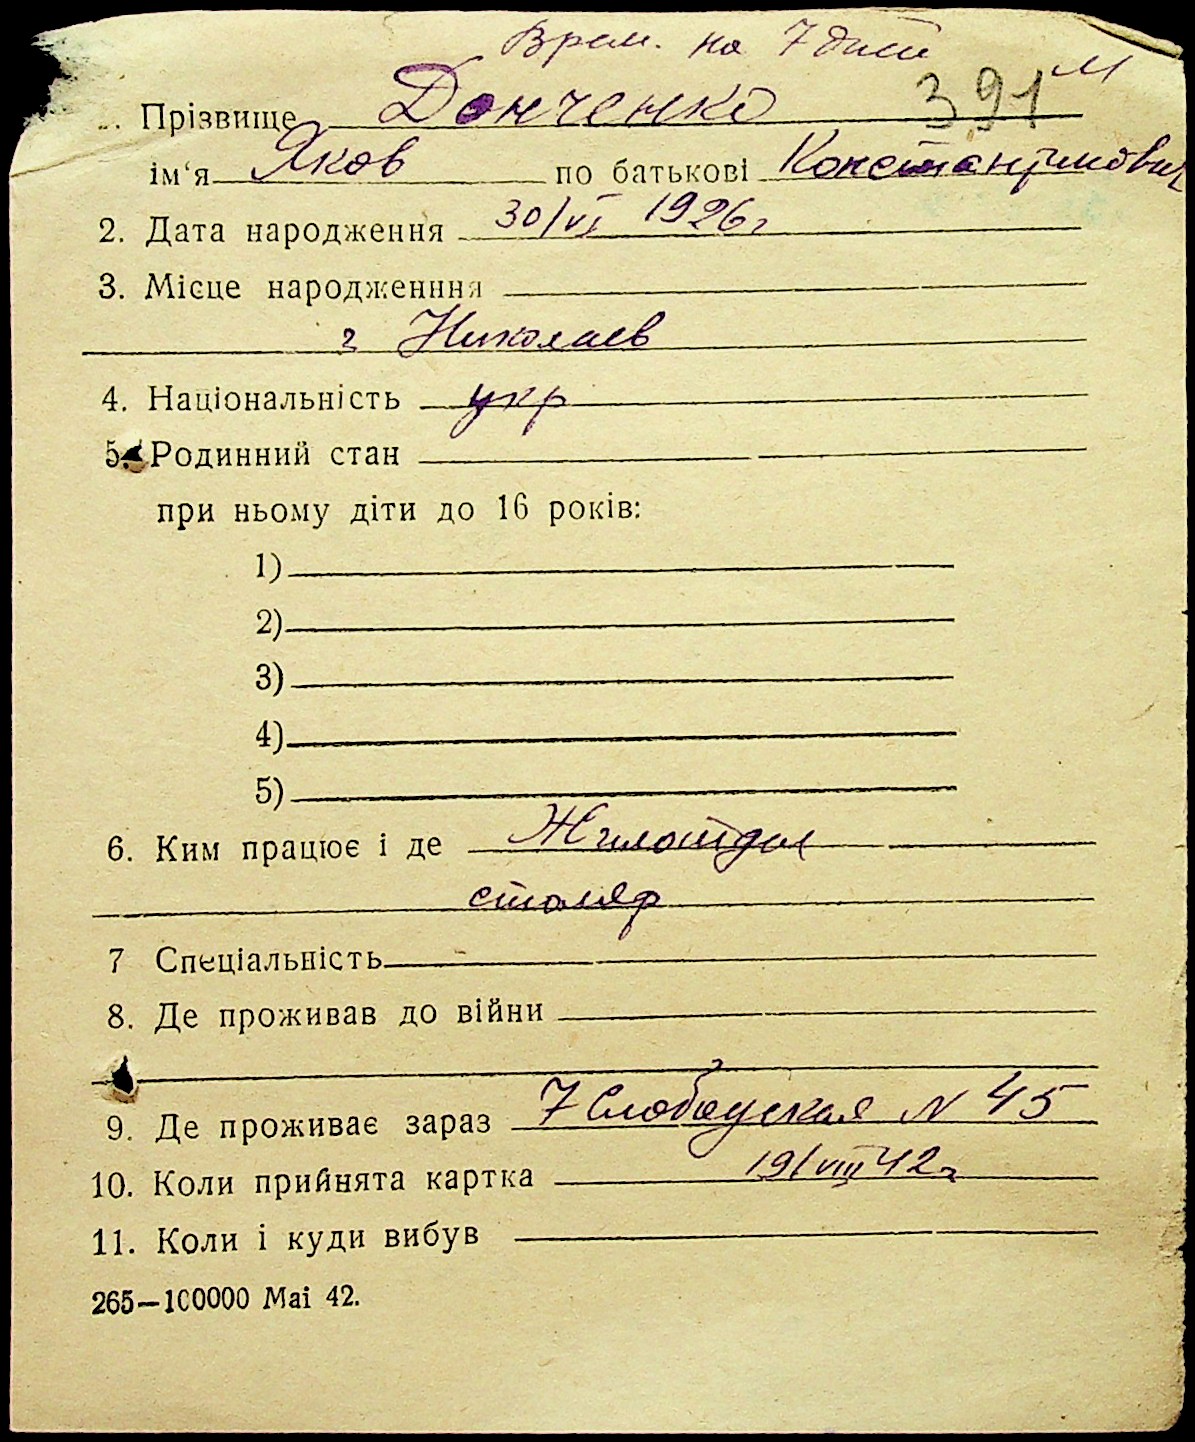 Врем. на 7 дней М
Прізвище Донченко 391
ім‘я Яков по батькові Константинович
2. Дата народження 30/VI 1926 г
3. Місце народженння
г Николаев
4. Національність укр
5. Родинний стан
при ньому діти до 16 років:
1)
2)
3)
4)
5)
6. Ким працює і де
столяр
7 Спеціальність
8. Де проживав до війни
9. Де проживає зараз 7 Слободская N 45
10. Коли прийнята картка 19/VIII 42 г
11. Коли і куди вибув
265—100000 Mai 42.